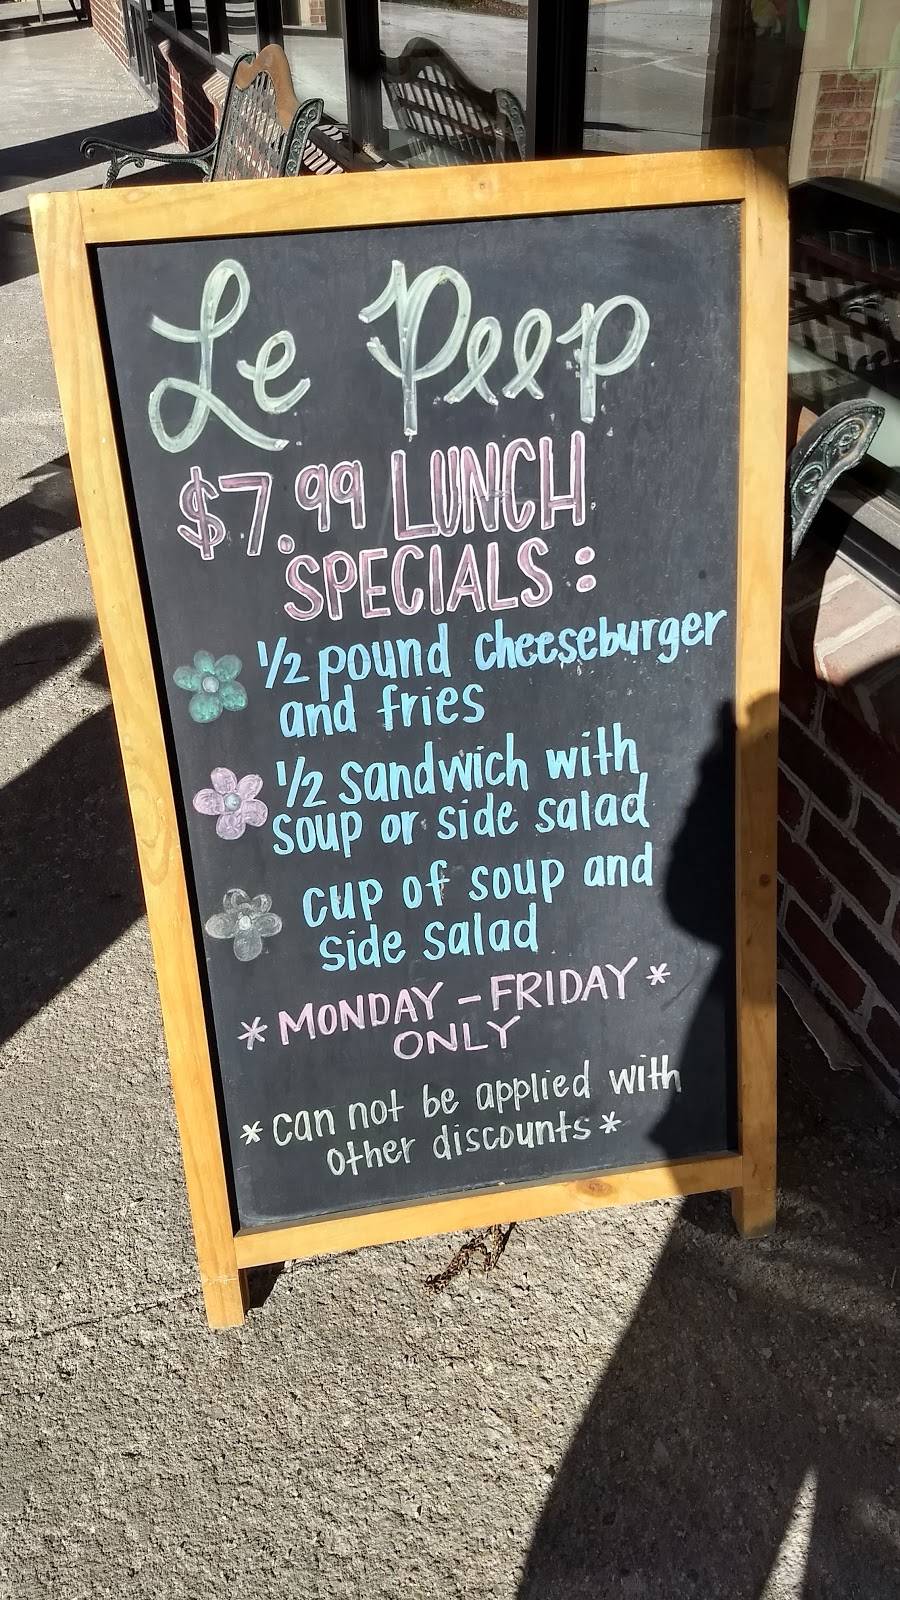 Le Peep
$7.99 LUNCH
SPECIALS:
1/2 pound cheeseburger
and fries
1/2 sandwich with
soup or side salad
cup of soup and
side salad
*MONDAY - FRIDAY*
ONLY
*can not be applied with
other discounts*